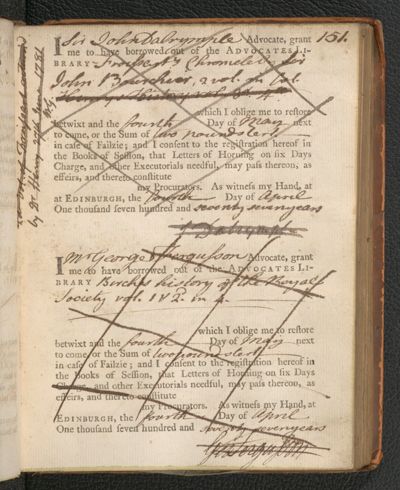 151.
I Sir John Dalrymple Advocate, grant
me to have borrowed out of the ADVOCATES LI-
BRARY Froissart's Chronicles, Sir
John Bourchier, 2 vol. in fol.
which I oblige me to restore
betwixt and the fourth Day of May next
to come, or the Sum of two pound sterl:
in case of Failzie; and I consent to the registration hereof in
the Books of Session, that Letters of Horning on six Days
Charge, and other Executorials needful, may pass thereon; as
effeirs, and thereto constitute
my Procurators. As witness my Hand, at
at EDINBURGH, the fourth Day of April
One thousand seven hundred and seventy seven years
J Dalrymple
I Mr George Fergusson Advocate, grant
me to have borrowed out of the ADVOCATES LI-
BRARY Birch's history of the Royal
Society vol. 1 & 2. in 4.
which I oblige me to restore
betwixt and the fourth Day of May next
to come, or the Sum of two pound sterl:
in case of Failzie; and I consent to the registration hereof in
the Books of Session, that Letters of Horning on six Days
Charge, and other Executorials needful, may pass thereon, as
effeirs, and thereto constitute
my Procurators. As witness my Hand, at
EDINBURGH, the fourth Day of April
One thousand seven hundred and seventy seven years
Geo Fergusson
by Dr. Henry 1781